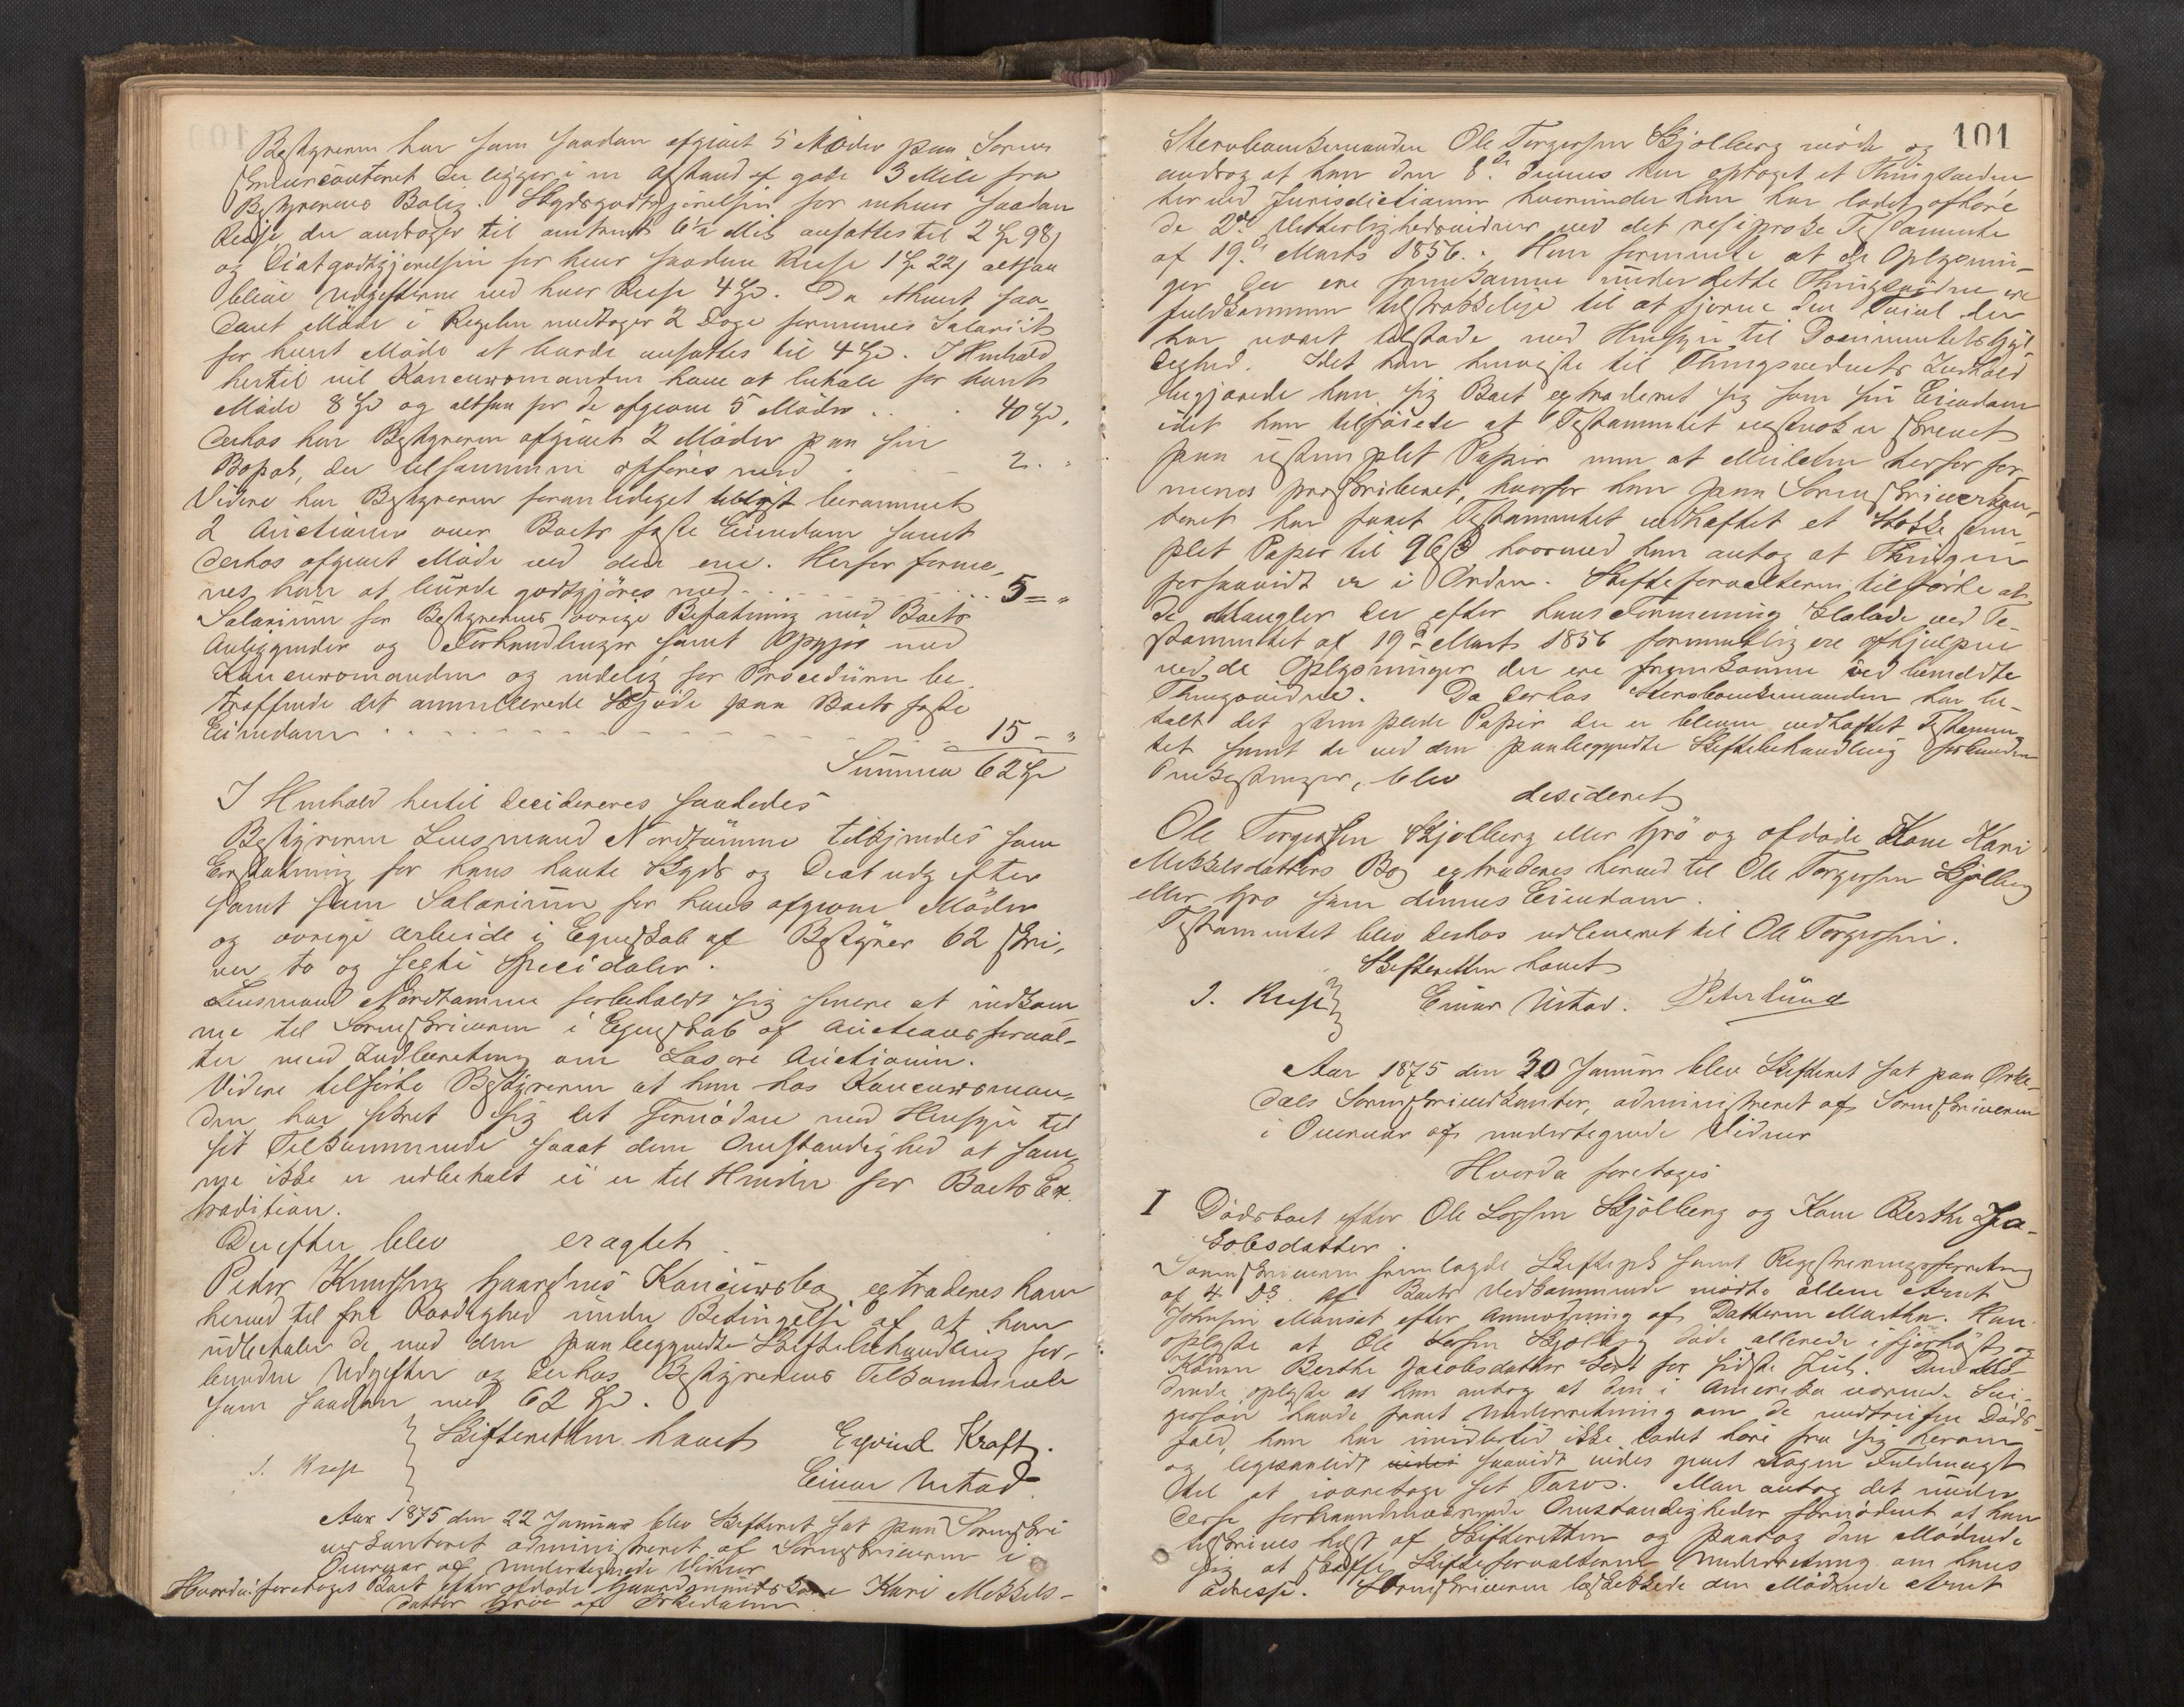 Bestyreren har som saadan afgivet 5 Møder paa Soren
skrivercontoret der ligger i en Afstand af godt 3 Mile fra
Bestyrerens Bolig. Skydsgodtgjørelsen for enhver saadan
Reise der andrager til omtrent 6½ Mil ansættes til 2 Spd 98 s
og Diætgodtgjørelsen for hver saadan Reise 1 Spd 22 s altsaa
blive Udgifterne ved hver Reise 4 Spd. Da ethvert saa-
dant Møde i Regelen medtager 2 Dage formenes Salariet
for hvert Møde at burde ansættes til 4 Spd. I Henhold
hertil vil Concursmanden have at betale for hvert
Møde 8 Spd og altsaa for de afgivne 5 Møder . . . 40 Spd.
Derhos har Bestyreren afgivet 2 Møder paa sin
Bopæl, der tilsammen opføres med . . . 2 - "
Videre har Bestyreren foranlediget berammet
2 Auctioner over Boets faste Eiendom samt
derhos afgivet Møde ved den ene. Herfor forme-
nes han at burde godtgjøres med . . . 5 = "
Salarium for Bestyrerens øvrige Befatning med Boets
Anliggender og Forhandlinger samt Opgjør med
Concursmanden og endelig for Proceduren be-
træffende det annullerede Skjøde paa Boets faste
Eiendom . . . 15 - "
Summa 62 Spd
I Henhold hertil decideres saaledes
Bestyreren Lensmand Nordtømme tilkjendes som
Erstatning for hans havte Skyds og Diætudgifter
samt som Salarium for hans afgivne Møder
og øvrige Arbeide i Egenskab af Bestyrer 62 skri-
ver to og sexti Speciedaler.
Lensmand Nordtømme forbeholdt sig senere at indkom
me til Sorenskriveren i Egenskab af Auctionsforval-
ter med Indberetning om Løsøre Auctionen.
Videre tilførte Bestyreren at han hos Concursman-
den har sikret sig det Fornødne med Hensyn til
sit Tilkommende saaat den Omstændighed at sam-
me ikke er udbetalt ei er til Hinder for Boets Ex-
tradition.
Derefter blev eragtet
Peder Knudsen Gaardnes Concursbo extraderes ham
herved til fri Raadighed under Betingelse af at han
udbetaler de med den paabegyndte Skiftebehandling for-
bundne Udgifter og derhos Bestyrerens Tilkommende
som saadan med 62 Spd.
Skifteretten hævet Eyvind Kraft.
J. Krefst Einar Ustad
Aar 1875 den 22 Januar blev Skifteret sat paa Sorenskri
vercontoret administreret af Sorenskriveren i
Overvær af undertegnede Vidner
Hvorda foretoges Boet efter afdøde Gaardmandskone Kari Mikkels-
datter Groe af Orkedalen.
101
Stervboenkemanden Ole Torgersen Skjølberg mødte og
androg at han den 8de dennes har optaget et Thingsvidne
her ved Jurisdictionen hvorunder han har ladet afhøre
de 2de Vitterlighedsvidner ved det resiproke Testamente
af 19de Marts 1856. Han formente at de Oplysnin-
ger der ere fremkomne under dette Thingsvidne ere
fuldkommen tilstrækkelige til at fjerne den Tvivl der
har været tilstede med Hensyn til Documentets Gyl-
dighed. Idet han henviste til Thingsvidnets Indhold
begjærede han sig Boet extraderet sig som sin Eiendom
idet han tilføiede at Testamentet vistnok er skrevet
paa ustemplet Papir men at Mulcten herfor for-
menes præscriberet, hvorfor han paa Sorenskrivercon-
toret har faaet Testamentet vedhæftet et Stykke stem-
plet Papir til 96 s hvormed han antog at Thingen
forsaavidt er i Orden. Skifteforvalteren tilførte at
de Mangler der efter hans Formening klæbede ved Te-
stamentet af 19de Marts 1856 formentlig ere afhjulpne
ved de Oplysninger der ere fremkomne ved bemeldte
Thingsvidne. Da derhos Stervboenkemanden har be-
talt det stemplede Papir der er bleven vedhæftet Testamen
tet samt de ved den paabegyndte Skiftebehandling forbundne
Omkostninger, blev
desideret
Ole Torgersen Skjolberg eller Grø og afdøde Kone Kari
Mikkelsdatters Bo extraderes herved til Ole Torgersen Skjølberg
eller Gro som dennes Eiendom.
Testamentet blev derhos udleveret til Ole Torgersen.
Skifteretten hævet
J. Krefst Einar Ustad. Peter Lund
Aar 1875 den 30 Januar blev Skifteret sat paa Orke-
dals Sorenskrivercontor, administreret af Sorenskriveren
i Overvær af undertegnede Vidner
Hvorda foretoges
I Dødsboet efter Ole Larsen Skjølberg og Kone Berthe Ja-
kobsdatter.
Sorenskriveren fremlagde Skifteph samt Registreringsforretning
af 4 Ds. Af Boets Vedkommende mødte allene Arnt
Johnsen Monset efter Anmodning af Datteren Marthe. Han
oplyste at Ole Larsen Skjolberg døde allerede ifjorhøst og
Konen Berthe Jacobsdatter kort for sidste Juul. Den Mø-
dende oplyste at han antog at den i Amerika værende Svi-
gersøn havde faaet Underretning om de indtrufne Døds-
fald, han har imidlertid ikke ladet høre fra sig herom
og ligesaalidt saavidt vides givet Nogen Fuldmagt
til at varetage sit Tarv. Man antog det under
disse forhaandenværende Omstændigheder fornødent at han
tilskrives herfra af Skifteretten og paatog den Mødende
sig at skaffe Skifteforvalteren Underretning om hans
Adresse. Sorenskriveren beskikkede den Mødende Arnt